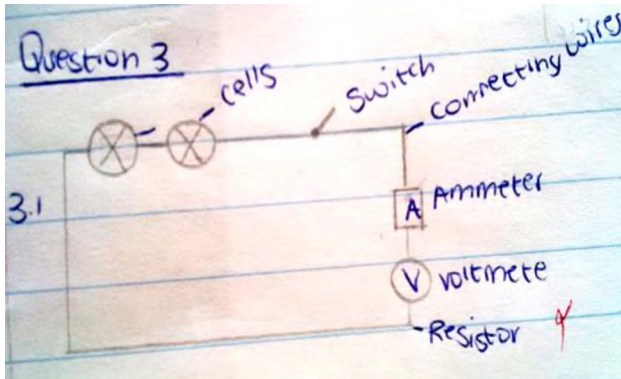 Question 3
cells
Switch
Connecting wires
3.1
A Ammeter
V voltmete
Resistor